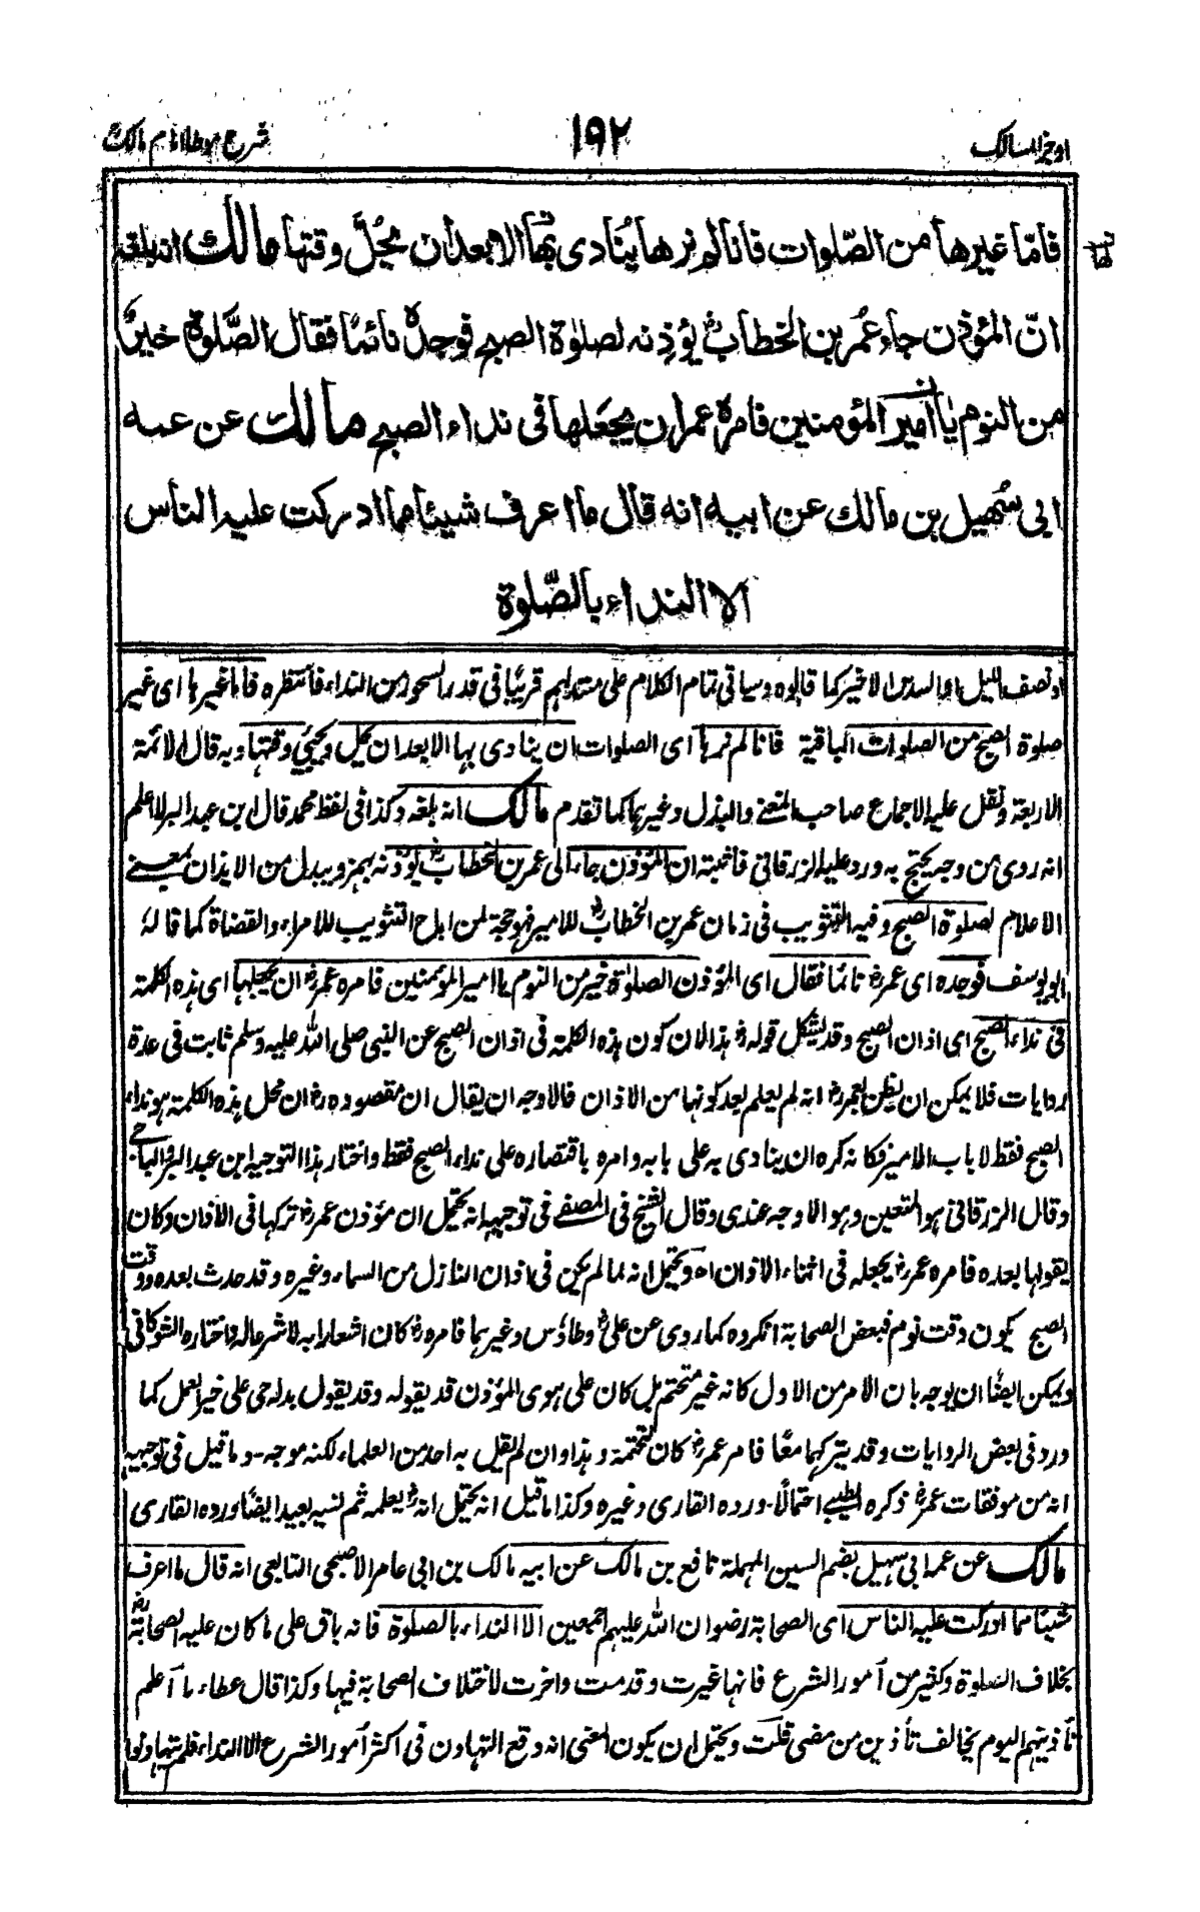 اوجز المسالک ١٩٢ شرح موطا امام مالک
فامّا غيرها من الصّلوات فانا لم نرها ينادى بها الا بعد ان يحلّ وقتها مالك انه بلغه
انّ المؤذن جاء عمر بن الخطاب يؤذنه لصلوة الصبح فوجده نائما فقال الصّلوة خير
من النوم يا امير المؤمنين فامره عمر ان يجعلها فى نداء الصبح مالك عن عمه
ابى سهيل بن مالك عن ابيه انه قال ما اعرف شيئا مما ادركت عليه الناس
الا النداء بالصّلوة
او نصف الليل او السدس الاخير كما قالوه وسياتى تمام الكلام على مستدلهم قريبًا فى قدر السحور من النداء فانتظره فاما غيرها اى غير
صلوة الصبح من الصلوات الباقية فانا لم نرها اى الصلوات ان ينادى بها الا بعد ان يحل ويجيئ وقتها وبه قال الائمة
الاربعة ونقل عليه الاجماع صاحب المغنى والبذل وغيرهما كما تقدم مالك انه بلغه وكذا فى لفظ محمد قال ابن عبد البر لا اعلم
انه روى من وجه يحتج به ورد عليه الزرقانى فاثبته ان المؤذن جاء الى عمر بن الخطاب يؤذنه بهمز ويبدل من الايذان بمعنى
الاعلام لصلوة الصبح وفيه التثويب فى زمان عمر بن الخطاب للامير فهو حجة لمن اباح التثويب للامراء والقضاة كما قاله
ابو يوسف فوجده اى عمر نائما فقال اى المؤذن الصلوة خير من النوم يا امير المؤمنين فامره عمر ان يجعلها اى هذه الكلمة
فى نداء الصبح اى اذان الصبح وقد يشكل قوله هذا لان كون هذه الكلمة فى اذان الصبح عن النبى صلى الله عليه وسلم ثابت فى عدة
روايات فلا يمكن ان يظن بعمر انه لم يعلم بعد كونها من الاذان فالاوجه ان يقال ان مقصوده ان محل هذه الكلمة هو نداء
الصبح فقط لا باب الامير فكانه كره ان ينادى به على بابه وامره باقتصاره على نداء الصبح فقط واختار هذا التوجيه ابن عبد البر والباجى
وقال الزرقانى هو المتعين وهو الاوجه عندى وقال الشيخ فى المصفى فى توجيهه انه يحتمل ان مؤذن عمر تركها فى الاذان وكان
يقولها بعده فامره عمر يجعله فى اثناء الاذان اه ويحتمل انه لما لم يكن فى اذان النازل من السماء وغيره وقد حدث بعده ووقت
الصبح يكون وقت نوم فبعض الصحابة انكروه كما روى عن على وطاؤس وغيرهما فامره كان اشعارا به لاشرعا له واختاره الشوكانى
ويمكن ايضًا ان يوجه بان الامر من الاول كانه غير متحتم بل كان على هوى المؤذن قد يقوله وقد يقول بدله حى على خير العمل كما
ورد فى بعض الروايات وقد يتركهما معًا فامر عمر كان لتحتمه وهذا وان لم يقل به احد من العلماء لكنه موجه۔ وما قيل فى توجيهه
انه من موفقات عمر ذكره الطيبى احتمالًا۔ ورده القارى وغيره وكذا ما قيل انه يحتمل انه يعلمه ثم نسيه بعيد ايضًا ورده القارى
مالك عن عمه ابى سهيل بضم السين المهملة نافع بن مالك عن ابيه مالك بن ابى عامر الاصبحى التابعى انه قال ما اعرف
شيئا مما ادركت عليه الناس اى الصحابة رضوان الله عليهم اجمعين الا النداء بالصلوة فانه باق على ما كان عليه الصحابة
بخلاف الصلوة وكثير من امور الشرع فانها غيرت وقدمت واخرت لاختلاف الصحابة فيها وكذا قال عطاء ما اعلم
تاذينهم اليوم يخالف تأذين من مضى قلت ويحتمل ان يكون المعنى انه وقع التهاون فى اكثر امور الشرع الا النداء فلم يتهاونوا